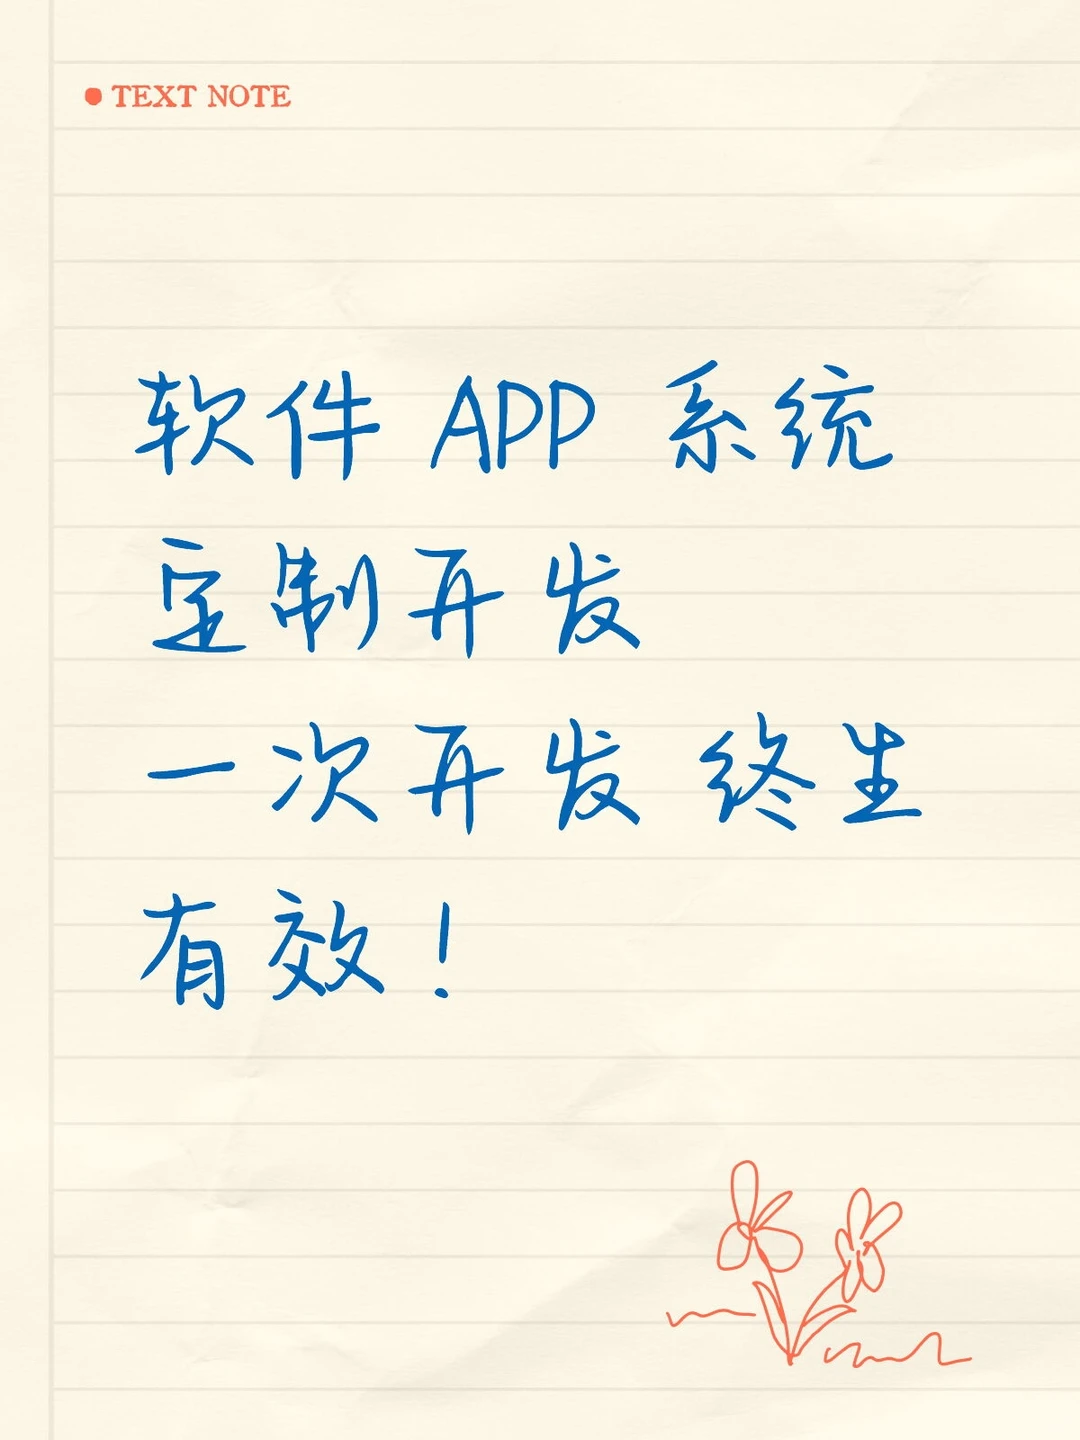 TEXT NOTE
软件 APP 系统
定制开发
一次开发 终生
有效！